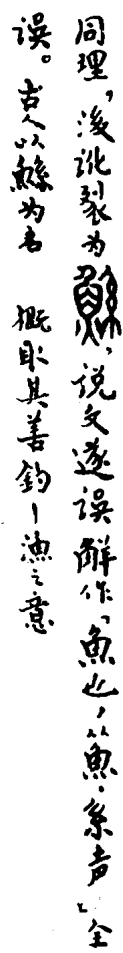 同理,後訛裂为鯀,说文遂误解作「魚也,从魚·系声」全
误。古人以鯀为名 概取其善釣－漁之意